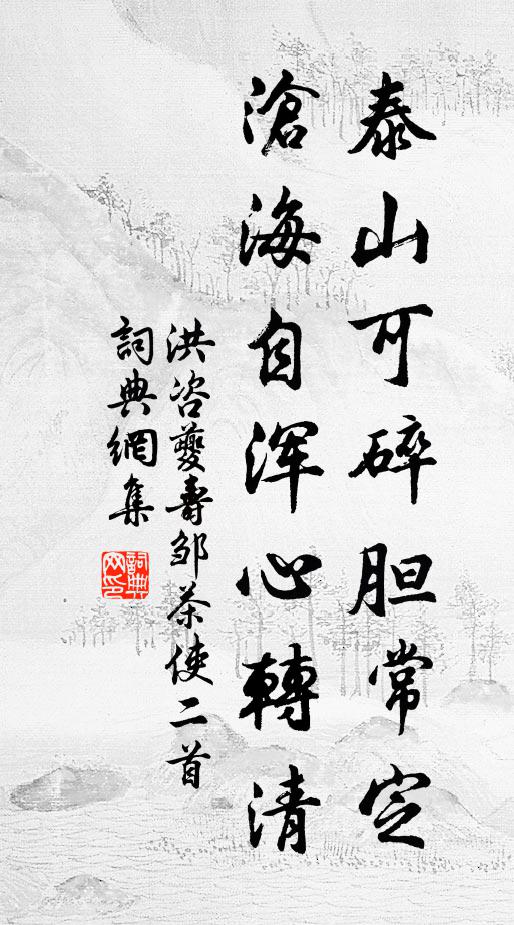 泰山可碎胆常定
滄海自浑心轉清
洪咨夔壽邹茶使二首
詞典網集
詞典网印